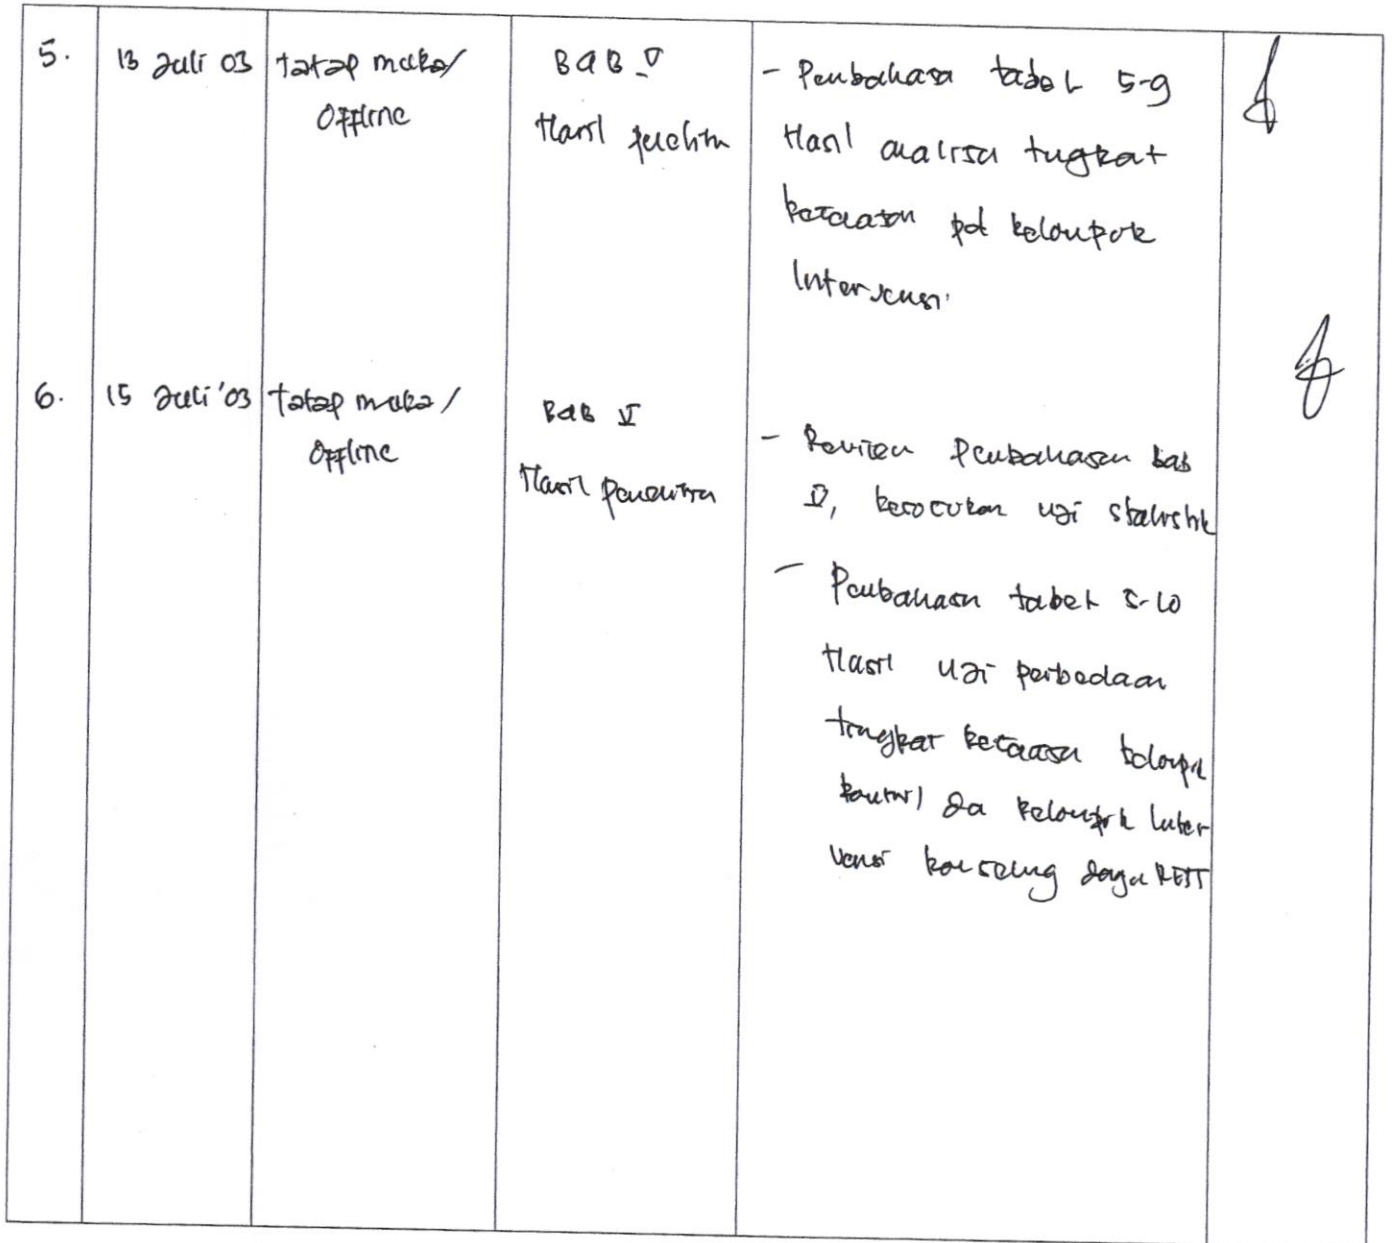 5.
13 Juli 03
tatap muka/
Offline
BAB V
Hasil
- Pembahasan tabel 5-9
Hasil analisa tingkat
ketaatan pd kelompok
Intervensi
6.
15 Juli '03
tatap muka/
Offline
BAB V
Hasil penelitian
- Review Pembahasan bab
V, uji statistik
- Pembahasan tabel 5-10
Hasil uji perbedaan
tingkat ketaatan kelompok
kontrol da kelompok Inter
vensi konseling